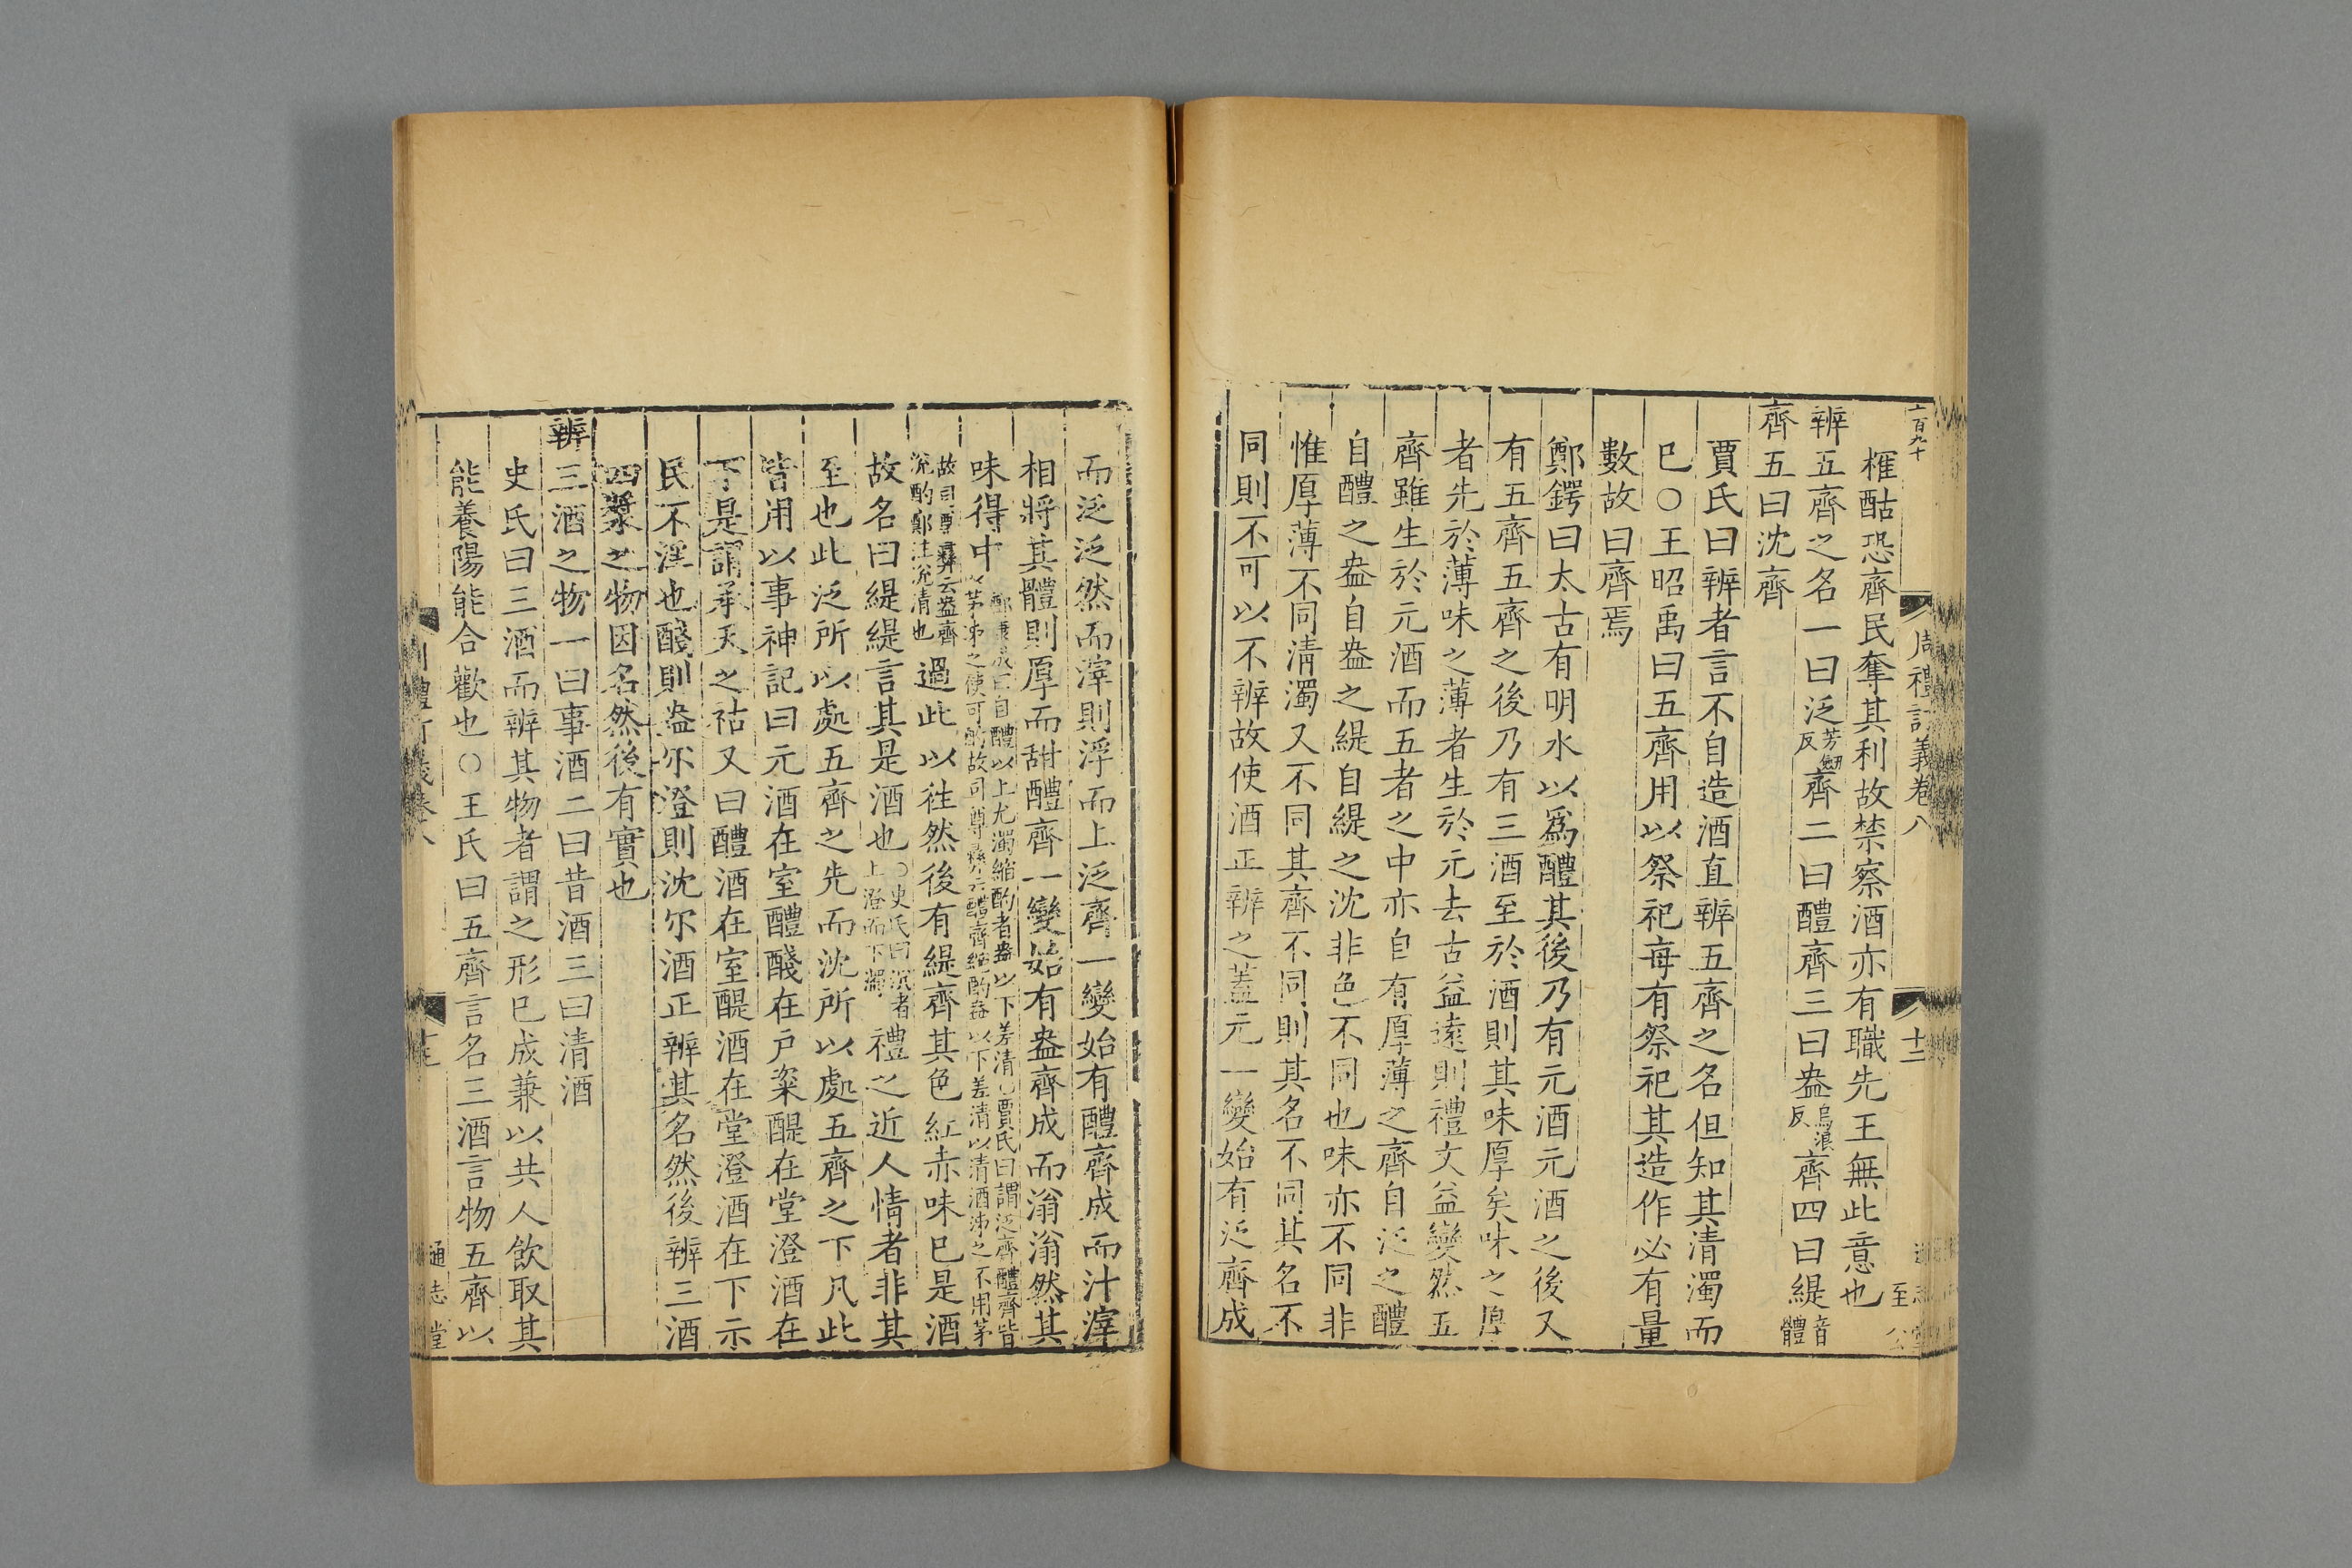 六百九十
周禮訂義卷八
十二
至
榷酤恐齊民奪其利故禁察酒亦有職先王無此意也
辨五齊之名一曰泛芳劒反齊二曰醴齊三曰盎烏浪反齊四曰緹音體
齊五曰沈齊
賈氏曰辨者言不自造酒直辨五齊之名但知其清濁而
巳○王昭禹曰五齊用以祭祀每有祭祀其造作必有量
數故曰齊焉
鄭鍔曰太古有明水以爲醴其後乃有元酒元酒之後又
有五齊五齊之後乃有三酒至於酒則其味厚矣味之厚
者先於薄味之薄者生於元去古益遠則禮文益變然五
齊雖生於元酒而五者之中亦自有厚薄之齊自泛之醴
自醴之盎自盎之緹自緹之沈非色不同也味亦不同非
惟厚薄不同清濁又不同其齊不同則其名不同其名不
同則不可以不辨故使酒正辨之蓋元一變始有泛齊成
而泛泛然而滓則浮而上泛齊一變始有醴齊成而汁滓
相將其體則厚而甜醴齊一變始有盎齊成而滃滃然其
味得中鄭康成曰自醴以上尤濁縮酌者盎以下差清○賈氏曰謂泛齊醴齊皆以茅泲之使可酌故司尊彝云醴齊縮酌盎以下差清以清酒泲之不用茅
故司尊彝云盎齊涗酌鄭注涗清也過此以往然後有緹齊其色紅赤味巳是酒
故名曰緹緹言其是酒也○史氏曰沉者上澄而下濁禮之近人情者非其
至也此泛所以處五齊之先而沈所以處五齊之下凡此
皆用以事神記曰元酒在室醴醆在戶粢醍在堂澄酒在
下是謂承天之祜又曰醴酒在室醍酒在堂澄酒在下示
民不淫也醆則盎尓澄則沈尓酒正辨其名然後辨三酒
四漿之物因名然後有實也
辨三酒之物一曰事酒二曰昔酒三曰清酒
史氏曰三酒而辨其物者謂之形巳成兼以共人飲取其
能養陽能合歡也○王氏曰五齊言名三酒言物五齊以
通志堂